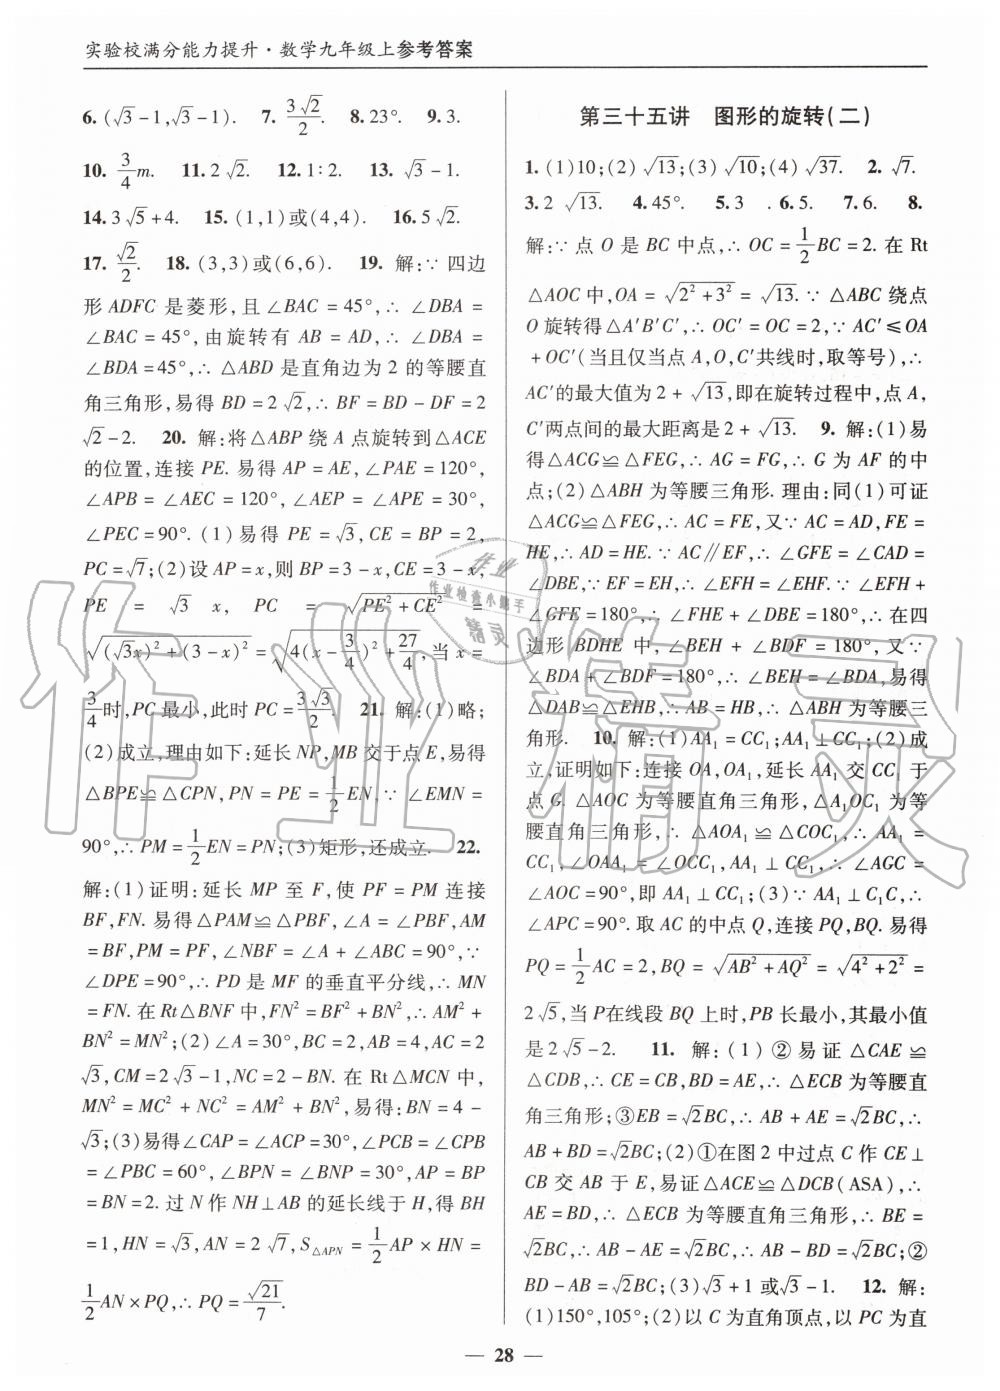 实验校满分能力提升·数学九年级上参考答案
6. (√3-1,√3-1). 7. 3√2/2. 8. 23°. 9. 3.
10. 3/4 m. 11. 2√2. 12. 1∶2. 13. √3-1.
14. 3√5+4. 15. (1,1)或(4,4). 16. 5√2.
17. √2/2. 18. (3,3)或(6,6). 19. 解:∵四边
形ADFC是菱形,且∠BAC=45°,∴∠DBA=
∠BAC=45°,由旋转有AB=AD,∴∠DBA=
∠BDA=45°,∴△ABD是直角边为2的等腰直
角三角形,易得BD=2√2,∴BF=BD-DF=2
√2-2. 20. 解:将△ABP绕A点旋转到△ACE
的位置,连接PE.易得AP=AE,∠PAE=120°,
∠APB=∠AEC=120°,∠AEP=∠APE=30°,
∠PEC=90°.(1)易得PE=√3,CE=BP=2,
PC=√7;(2)设AP=x,则BP=3-x,CE=3-x,
PE=√3x,PC=√(PE²+CE²)=
√((√3x)²+(3-x)²)=√(4(x-3/4)²+27/4),当x=
3/4时,PC最小,此时PC=3√3/2. 21. 解:(1)略;
(2)成立,理由如下:延长NP,MB交于点E,易得
△BPE≌△CPN,PN=PE=1/2EN,∵∠EMN=
90°,∴PM=1/2EN=PN;(3)矩形,还成立. 22.
解:(1)证明:延长MP至F,使PF=PM连接
BF,FN.易得△PAM≌△PBF,∠A=∠PBF,AM
=BF,PM=PF,∠NBF=∠A+∠ABC=90°,∵
∠DPE=90°,∴PD是MF的垂直平分线,∴MN
=FN.在Rt△BNF中,FN²=BF²+BN²,∴AM²+
BN²=MN²;(2)∠A=30°,BC=2,AB=4,AC=2
√3,CM=2√3-1,NC=2-BN.在Rt△MCN中,
MN²=MC²+NC²=AM²+BN²,易得:BN=4-
√3;(3)易得∠CAP=∠ACP=30°,∠PCB=∠CPB
=∠PBC=60°,∠BPN=∠BNP=30°,AP=BP
=BN=2.过N作NH⊥AB的延长线于H,得BH
=1,HN=√3,AN=2√7,S△APN=1/2AP×HN=
1/2AN×PQ,∴PQ=√21/7.
第三十五讲 图形的旋转(二)
1. (1)10;(2)√13;(3)√10;(4)√37. 2. √7.
3. 2 √13. 4. 45°. 5. 3 . 6. 5. 7. 6. 8.
解:∵点O是BC中点,∴OC=1/2BC=2.在Rt
△AOC中,OA=√(2²+3²)=√13.∵△ABC绕点
O旋转得△A′B′C′,∴OC′=OC=2,∵AC′≤OA
+OC′(当且仅当点A,O,C′共线时,取等号),∴
AC′的最大值为2+√13,即在旋转过程中,点A,
C′两点间的最大距离是2+√13. 9. 解:(1)易
得△ACG≌△FEG,∴AG=FG,∴G为AF的中
点;(2)△ABH为等腰三角形.理由:同(1)可证
△ACG≌△FEG,∴AC=FE,又∵AC=AD,FE=
HE,∴AD=HE.∵AC∥EF,∴∠GFE=∠CAD=
∠DBE,∵EF=EH,∴∠EFH=∠EHF.∵∠EFH+
∠GFE=180°,∴∠FHE+∠DBE=180°,∴在四
边形BDHE中,∠BEH+∠BDF=180°,又∵
∠BDA+∠BDF=180°,∴∠BEH=∠BDA,易得
△DAB≌△EHB,∴AB=HB,∴△ABH为等腰三
角形. 10. 解:(1)AA₁=CC₁;AA₁⊥CC₁;(2)成
立,证明如下:连接OA,OA₁,延长AA₁交CC₁于
点G.△AOC为等腰直角三角形,△A₁OC₁为等
腰直角三角形,∴△AOA₁≌△COC₁,∴AA₁=
CC₁,∠OAA₁=∠OCC₁,AA₁⊥CC₁,∴∠AGC=
∠AOC=90°,即AA₁⊥CC₁;(3)∵AA₁⊥C₁C,∴
∠APC=90°.取AC的中点Q,连接PQ,BQ.易得
PQ=1/2AC=2,BQ=√(AB²+AQ²)=√(4²+2²)=
2√5,当P在线段BQ上时,PB长最小,其最小值
是2√5-2. 11. 解:(1)②易证△CAE≌
△CDB,∴CE=CB,BD=AE,∴△ECB为等腰直
角三角形;③EB=√2BC,∴AB+AE=√2BC,∴
AB+BD=√2BC;(2)①在图2中过点C作CE⊥
CB交AB于E,易证△ACE≌△DCB(ASA),∴
AE=BD,∴△ECB为等腰直角三角形,∴BE=
√2BC,∴AB-AE=√2BC,∴AB-BD=√2BC;②
BD-AB=√2BC;(3)√3+1或√3-1. 12. 解:
(1)150°,105°;(2)以C为直角顶点,以PC为直
— 28 —
作业精灵
作业
作业检查小能手
精灵